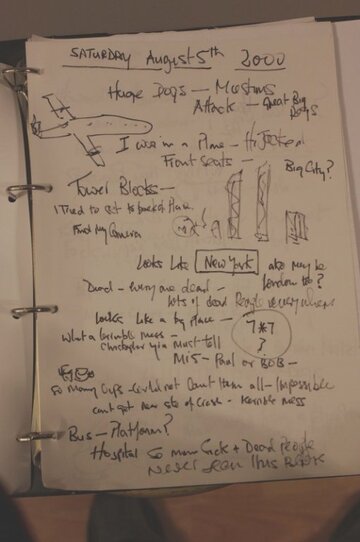 SATURDAY August 5th 2000
Huge Dogs — Mastins
Attack — Great Big
Dogs
I was in a Plane — HiJacked
Front Seats —
Big City?
Tower Blocks —
I Tried to get to back of Plane
Find My Camera
Looks Like New York also maybe
London to?
Dead — everyone dead —
lots of dead People everywhere
Looks Like a big Place — 7*7
?
What a terrible mess —
Christopher must tell
Mi5 — Paul or BOB —
So Many Cups — could not Count them all — Impossible
cant get near site of Crash — terrible mess
Bus — Platform?
Hospital So many Sick + Dead People
Never seen this Before